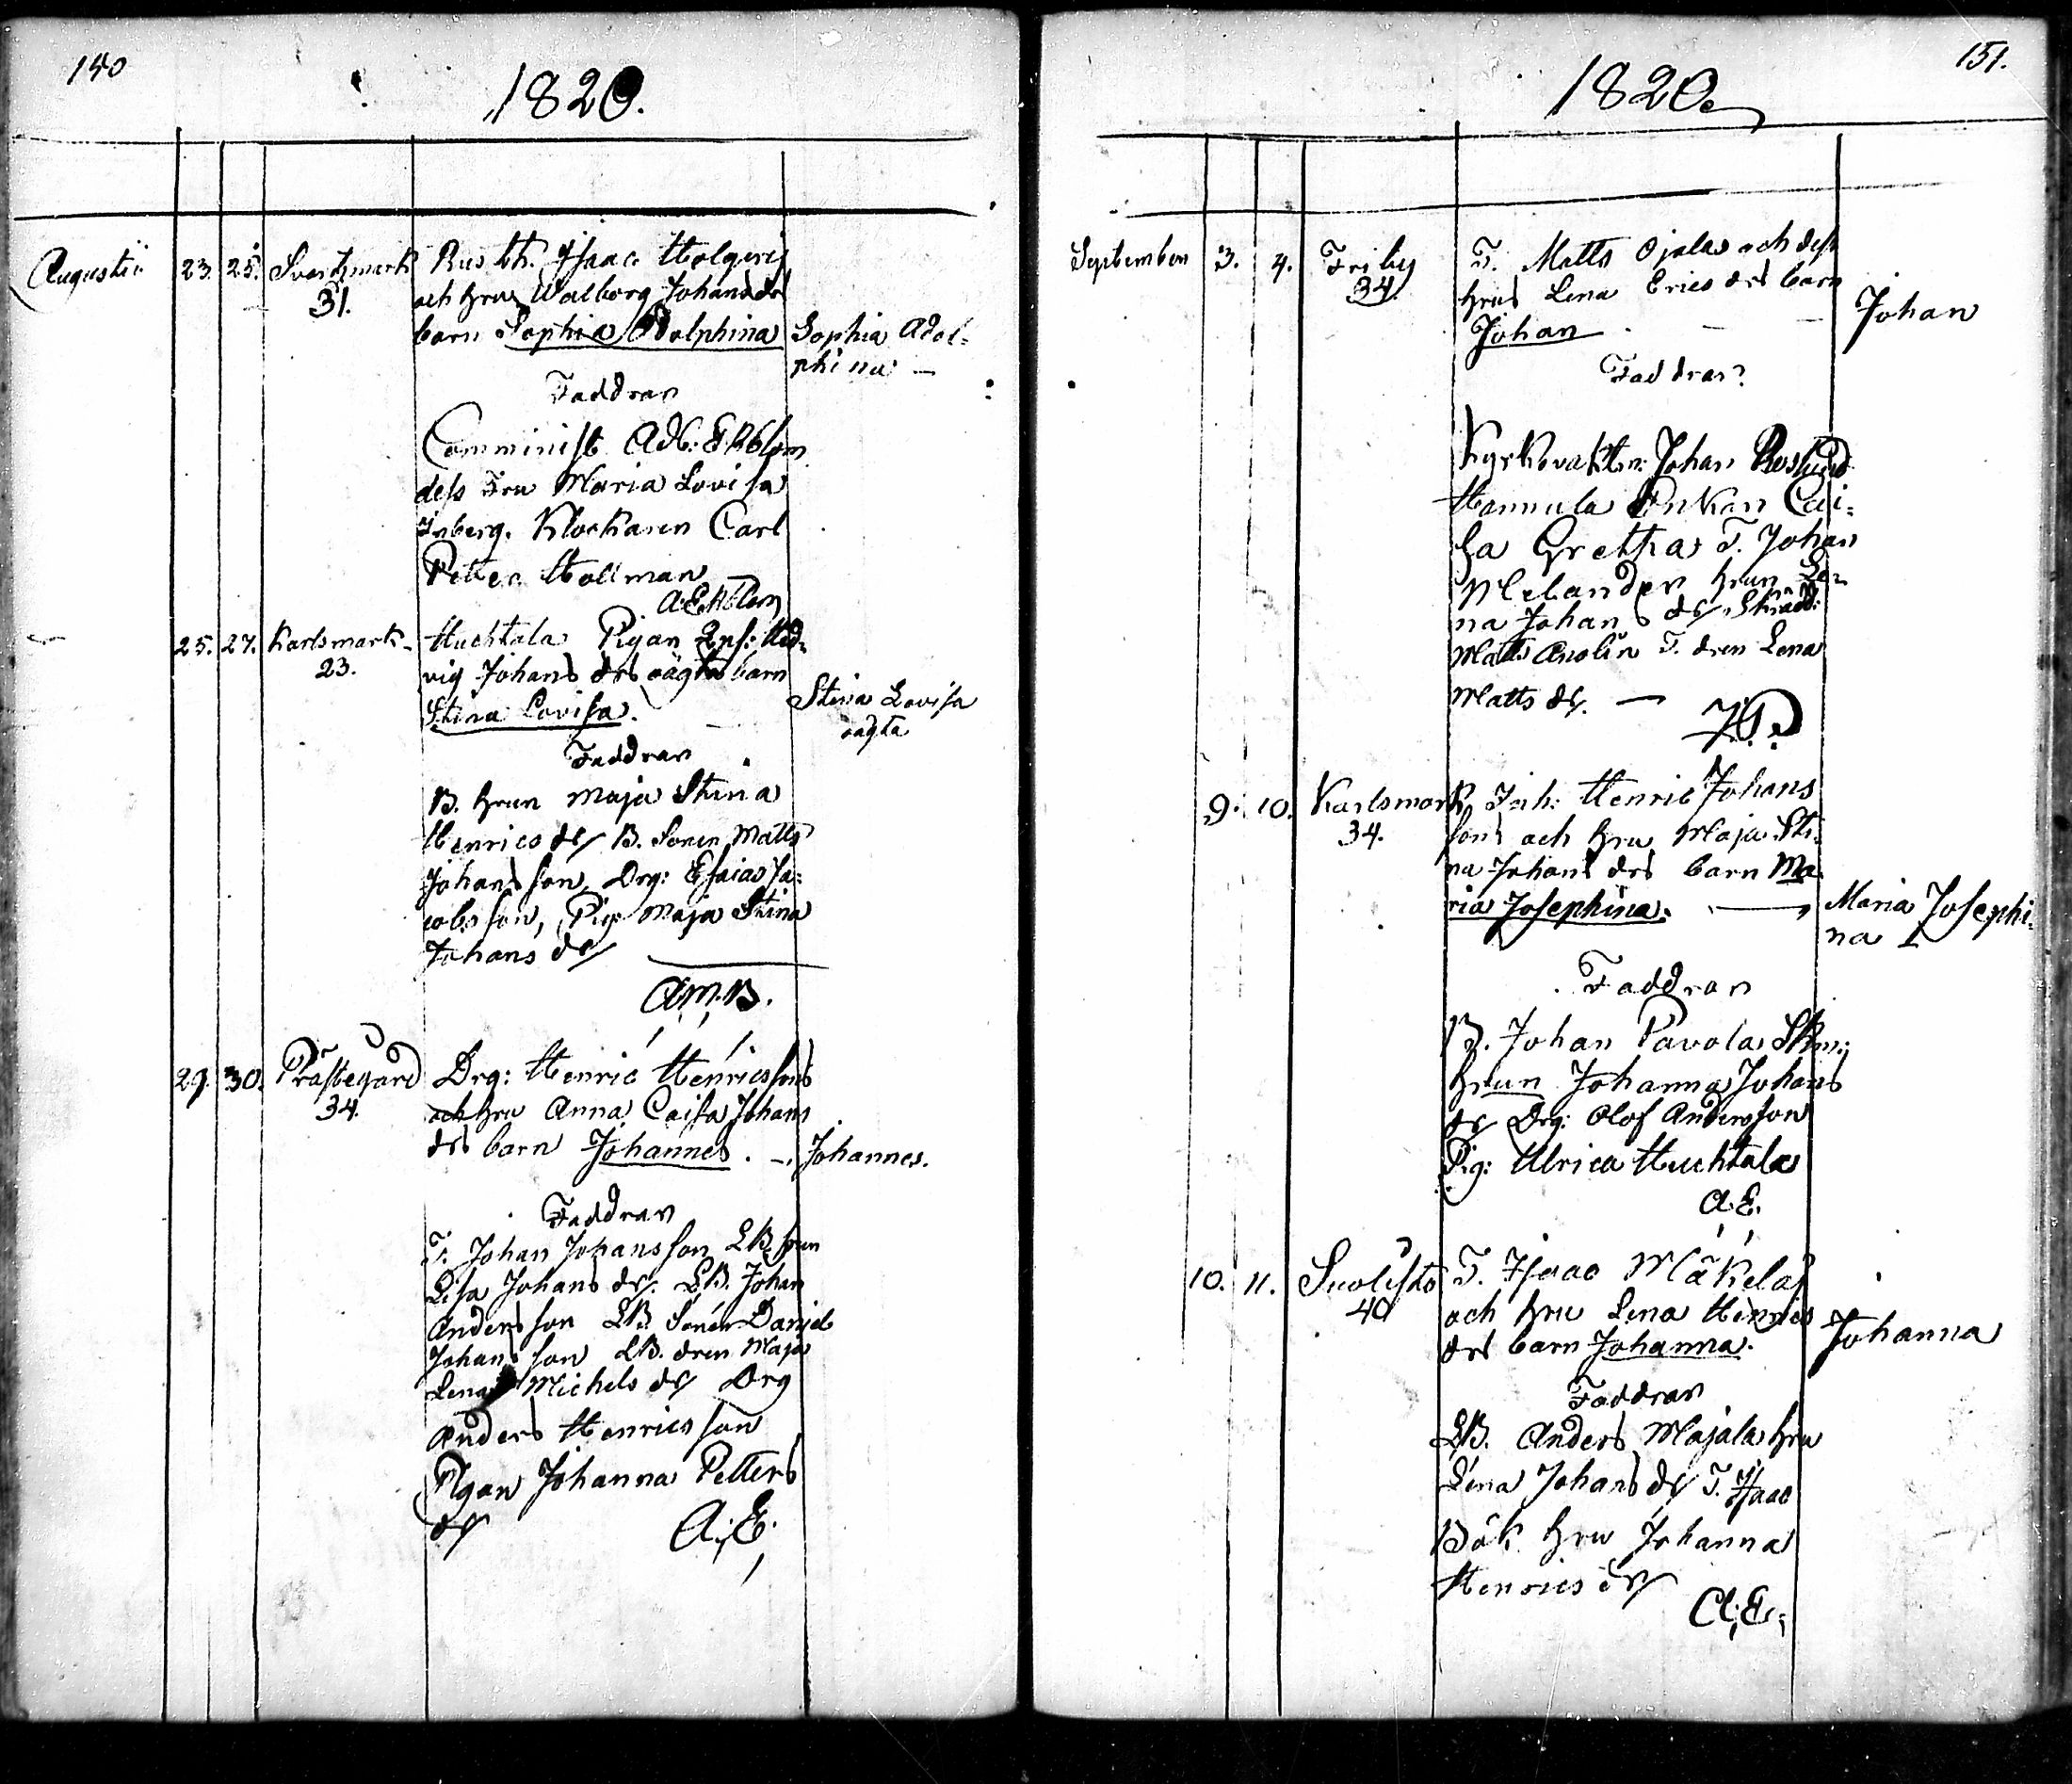 140
1820.
Augustii 23. 25. Svartsmark Rusth. Isaac Holgers
31. och hru Walborg Johans drs
barn Sophia Adolphina Sophia Adol=
phina —
Faddrar
Comminist. Ad6: Ekblom
dess Fru Maria Lovisa
Inberg. Klockaren Carl
Petter Hollman
A: Ekblom
25. 27. Karlsmark Huchtala Pigan Hed=
23. vig Johans drs oägta barn
Stina Lovisa. Stina Lovisa
oägta
Faddrar
B. hrun Maja Stina
Henrics dr B. Sonen Matts
Johansson, Drg: Esaias Ja=
cobsson, Pig. Maja Stina
Johans dr
A.M.B.
29. 30. Prästegård Drg: Henric Henricssons
34. och hru Anna Caisa Johans
drs barn Johannes. — Johannes.
Faddrar
T. Johan Johansson LB. hrun
Lisa Johans dr. LB. Johan
Andersson LB. Sonen Daniel
Johansson LB. dren Maja
Lena Michels dr Drg
Anders Henricsson
Pigan Johanna Petters
dr A:E.
151.
1820.
September 3. 4. Friby T. Matts Ojalas och dess
34. hrus Lena Erics drs barn
Johan — Johan
Faddrar:
Kyrkovakten Johan Roslund
Hannula Enkan Cai=
sa Gretha T. Johan
Melander hrun Le=
na Johans dr Skrädd:
Matts Anolin T. dren Lena
Matts dr. —
9. 10. Karlsmark Inh: Henric Johans
34. sons och hru Maja Sti=
na Johans drs barn Ma=
ria Josephina. — Maria Josephi=
na
Faddrar
B. Johan Pavola
hrun Johanna Johans
dr Drg: Olof Andersson
Pig: Ulrica Huchtala
A.E.
10. 11. Suolisto T. Isaac Mäkeläs
40 och hru Lena Henrics
drs barn Johanna. Johanna
Faddrar
LB. Anders Majala hru
Lena Johans dr T. Isaac
Bök hru Johanna
Henrics dr
A:E: